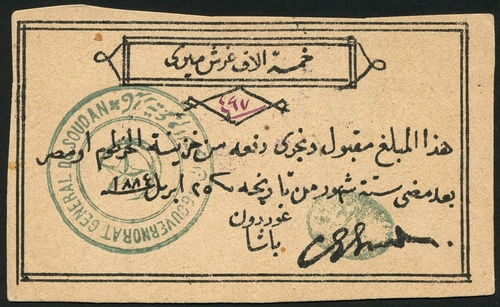 خمسة الاف غرش ميري
٤٩٧
هذا المبلغ مقبول ويجري دفعه من خزينة الخرطوم او مصر
بعد مضي ستة شهور من تاريخه ٢٥ ابريل ١٨٨٤
غوردون
باشا
GOUVERNORAT GENERAL DU SOUDAN